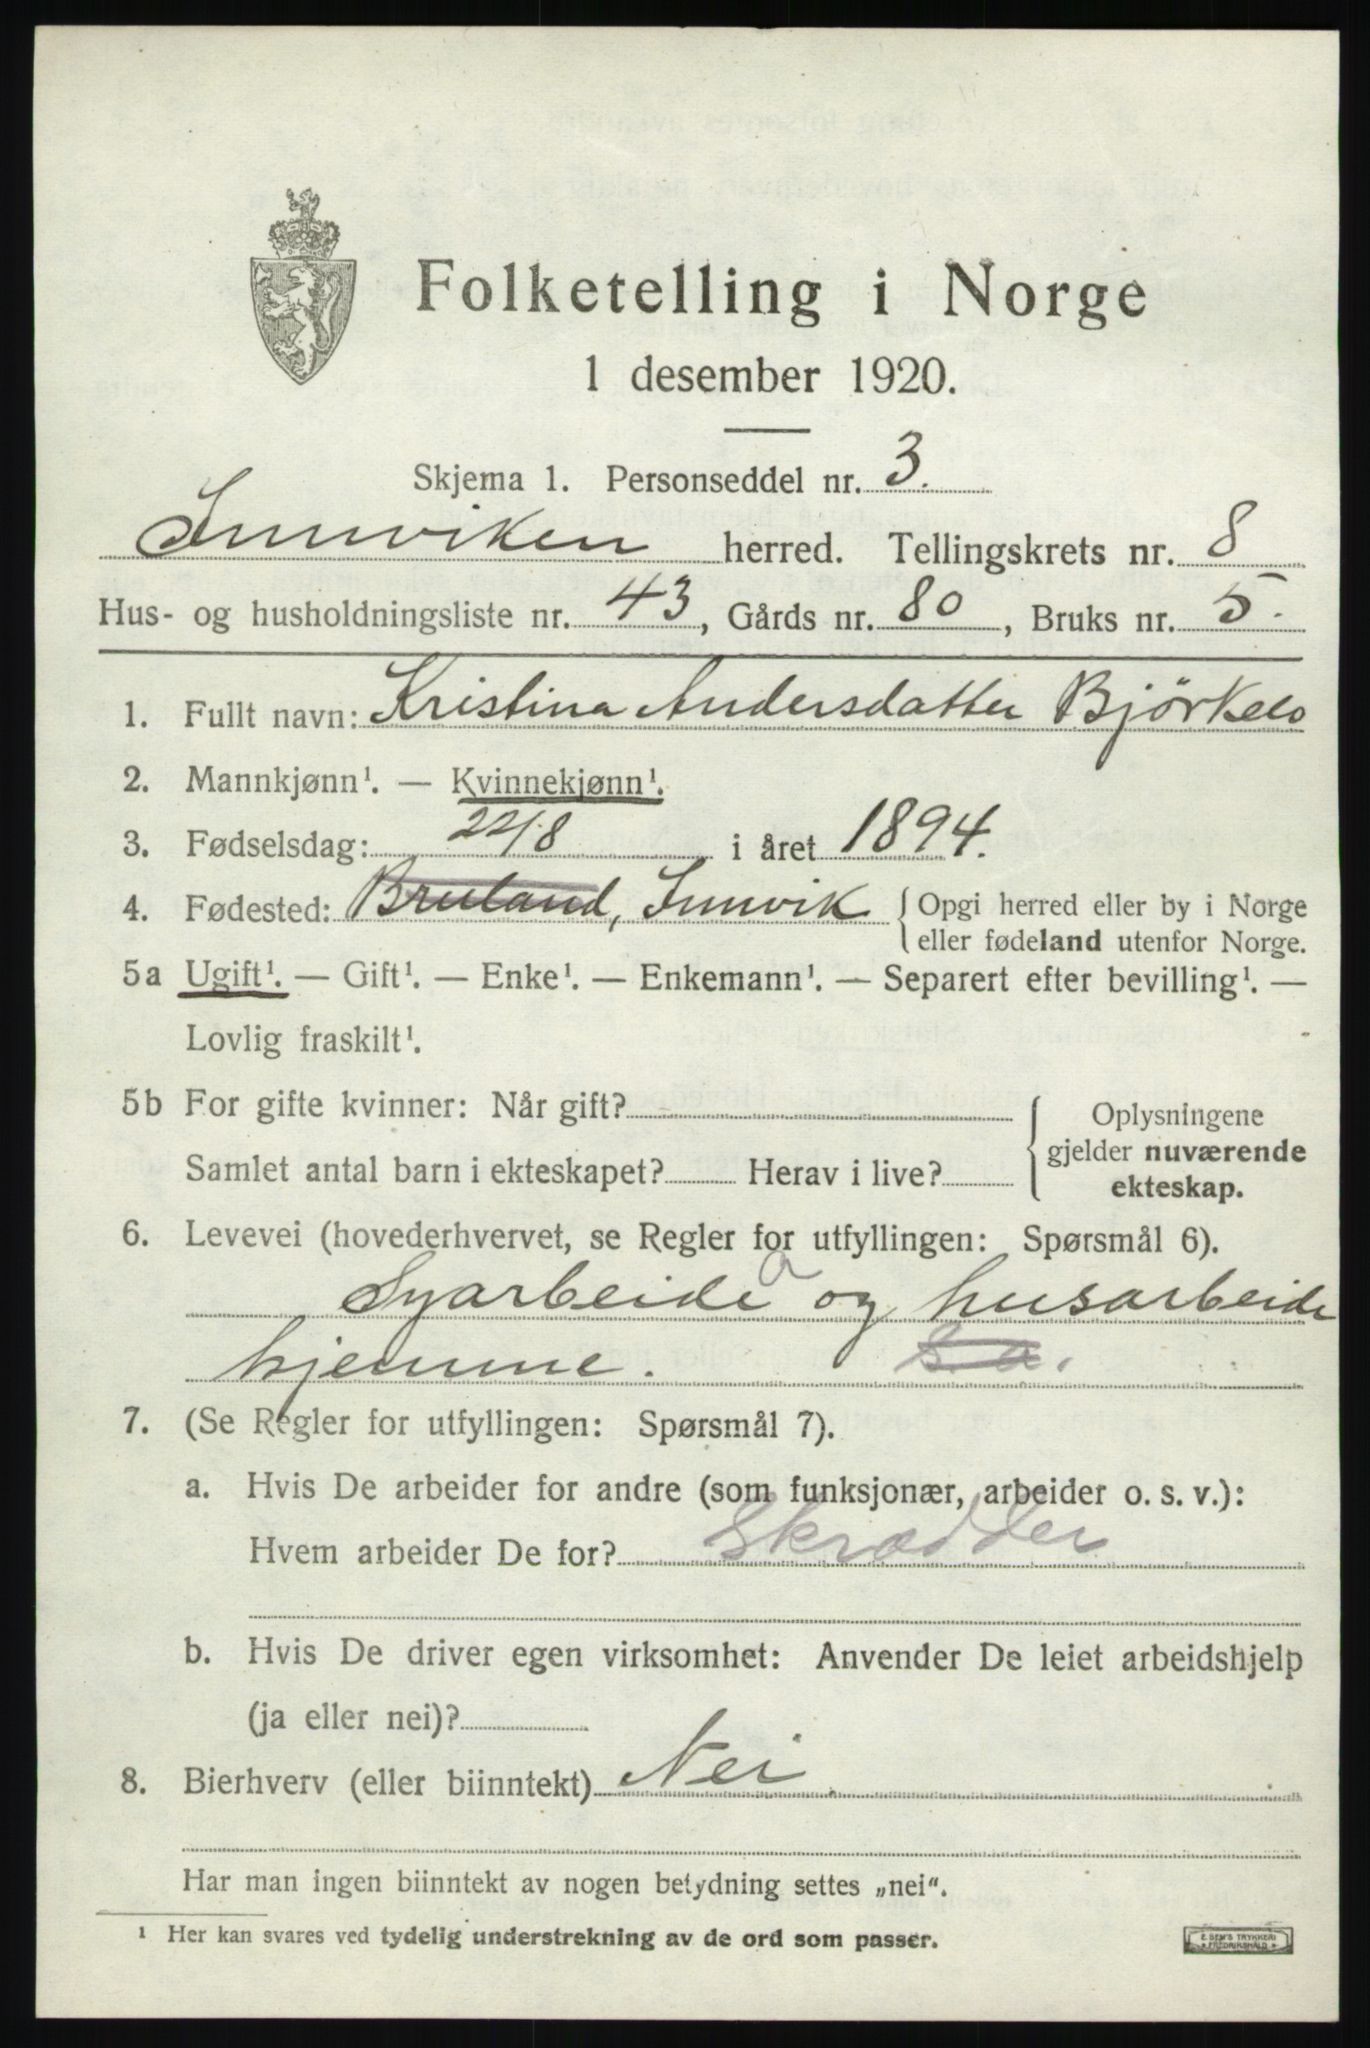 Folketelling i Norge
1 desember 1920.
Skjema 1. Personseddel nr. 3.
Innviken herred. Tellingskrets nr. 8
Hus- og husholdningsliste nr. 43, Gårds nr. 80, Bruks nr. 5.
1. Fullt navn: Kristina Andersdatter Björkelo
2. Mannkjønn¹. — Kvinnekjønn¹.
3. Fødselsdag: 22/8 i året 1894.
4. Fødested: Bruland, Innvik { Opgi herred eller by i Norge
eller fødeland utenfor Norge.
5a Ugift¹. — Gift¹. — Enke¹. — Enkemann¹. — Separert efter bevilling¹. —
Lovlig fraskilt¹.
5b For gifte kvinner: Når gift?
Samlet antal barn i ekteskapet? Herav i live?
Oplysningene
gjelder nuværende
ekteskap.
6. Levevei (hovederhvervet, se Regler for utfyllingen: Spørsmål 6).
a
Syarbeide og husarbeide
hjemme.
7. (Se Regler for utfyllingen: Spørsmål 7).
a. Hvis De arbeider for andre (som funksjonær, arbeider o. s. v.):
Hvem arbeider De for? Skrædder
b. Hvis De driver egen virksomhet: Anvender De leiet arbeidshjelp
(ja eller nei)?
8. Bierhverv (eller biinntekt) Nei.
Har man ingen biinntekt av nogen betydning settes „nei“.
¹ Her kan svares ved tydelig understrekning av de ord som passer.
E. SEM'S TRYKKERI
FREDRIKSHALD